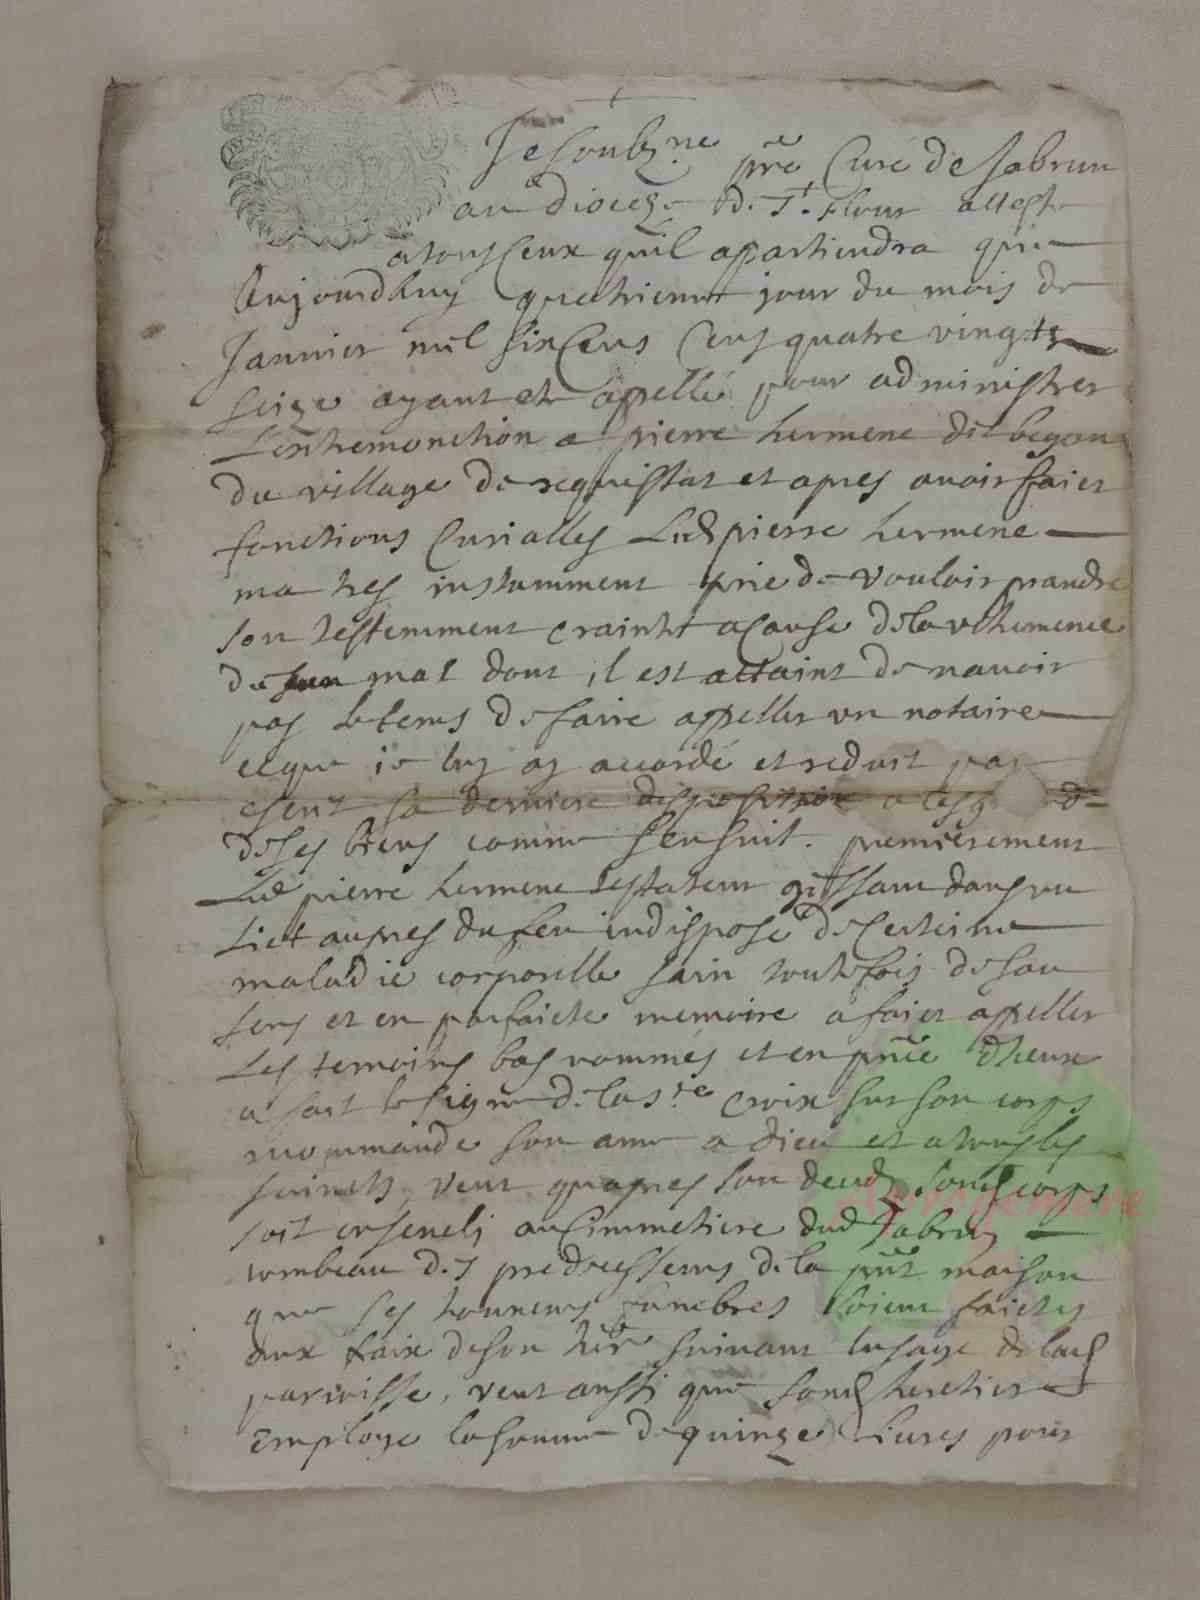 Je soubz.ne pre Curé de Jabrun
au dioceze d. St. flour atteste
a tous Ceux quil apartiendra que
Aujourdhuy quatrieme jour du mois de
Janvier mil six Cens quatre vingts
seize ayant ete appellé pour administrer
Lextremonction a pierre hermene dit begon
du village de requistat et apres avoir faict
fonctions Curialles Led pierre hermene
ma tres instamment prie de vouloir prandre
son testemment craint a Cause de la vehemence
de son mal dont il est attaint de navoir
pas le tems de faire appeller un notaire
ce que je luy ay accordé et reduit par
escrit sa derniere disposition a lesg
de ses biens comme sensuit. premierement
Led pierre hermene testateur gissant dans un
Lict aupres du feu indispose de Certeine
maladie corporelle sain toutefois de son
sens et en parfaicte memoire a faict appeller
Les temoins bas nommes et en pnce dheux
a fait le signe de la ste croix sur son corps
recommande son ame a dieu et a tous les
saincts, veut quapres son decedz sond corps
soit enseveli au Cimmetiere dud Jabrun
tombeau d.s predecesseurs de la pnt maison
que ses honneurs funebres soient faictes
aux fraix de son her suivant lusage de lad
parroisse, veut aussi que sond heretier
Employe la somme de quinze Livres pour